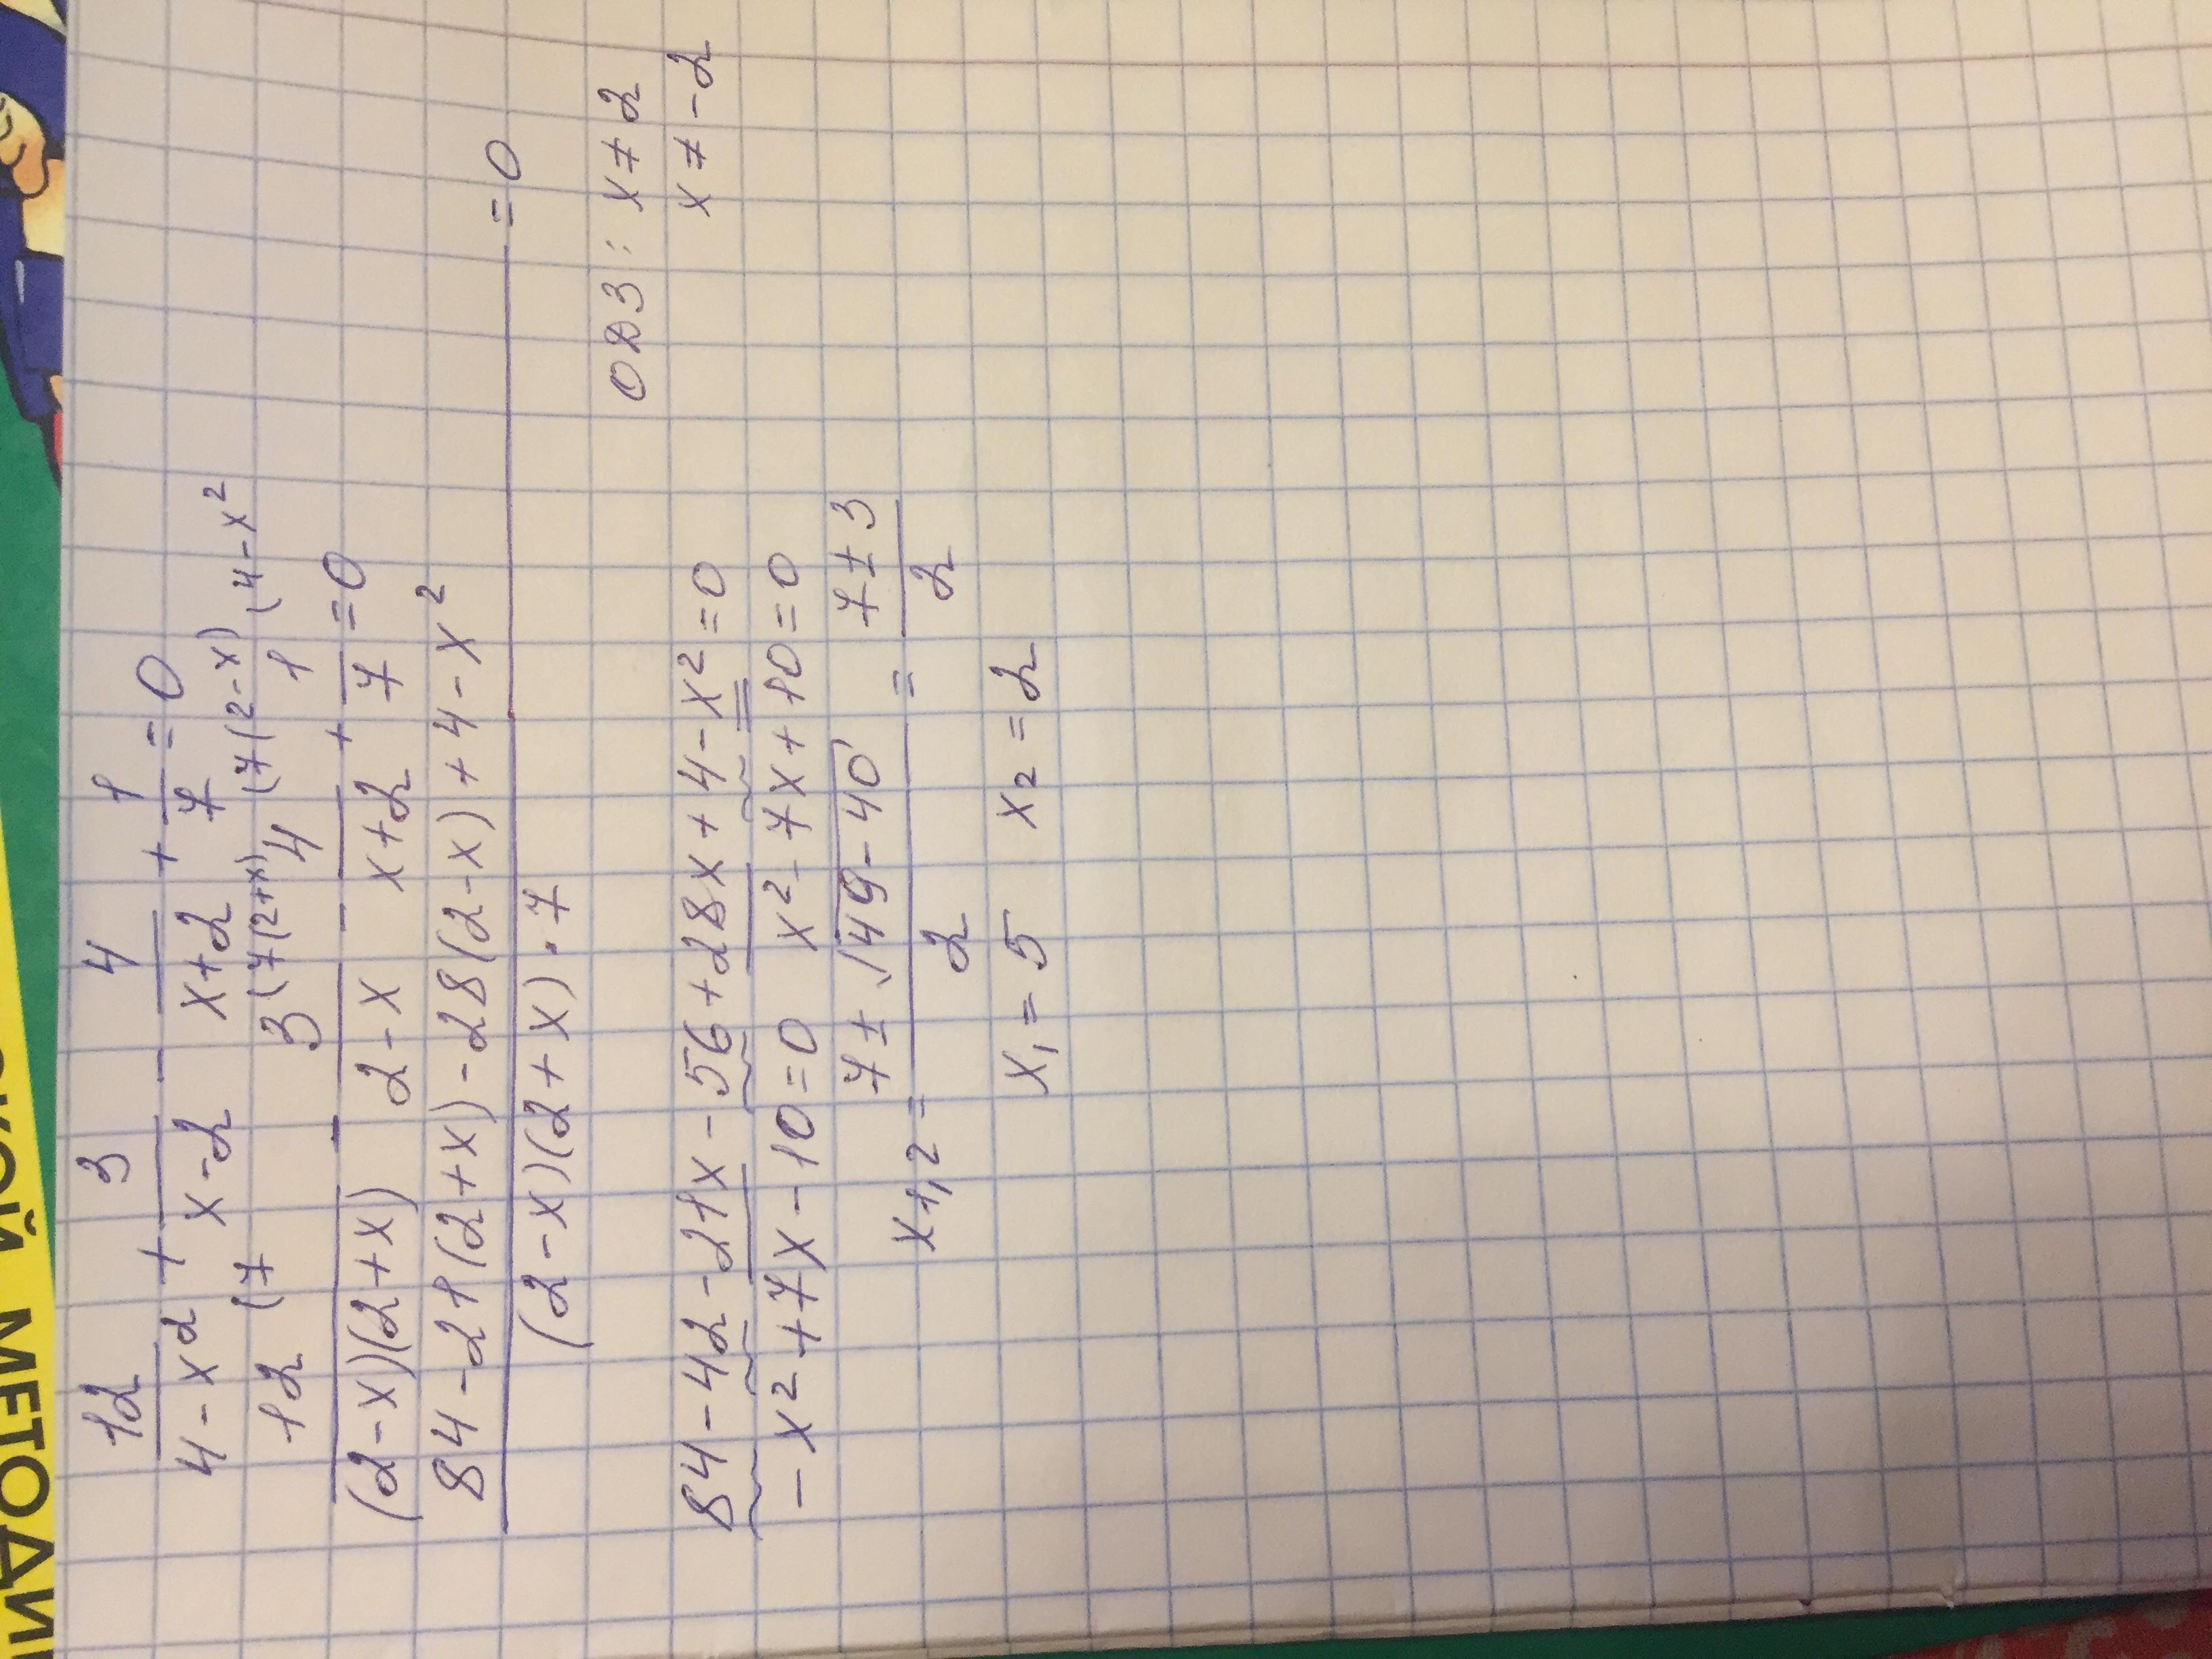 12/(4-x²) + 3/(x-2) - 4/(x+2) + 1/7 = 0
12 (7/((2-x)(2+x)) - 3 (7(2+x)/(2-x) - 4 (7(2-x)/(x+2) + 1 (4-x²/7 = 0
(84-21(2+x)-28(2-x)+4-x²)/((2-x)(2+x)·7) = 0
ОДЗ: x≠2
x≠-2
84-42-21x-56+28x+4-x²=0
-x²+7x-10=0 x²-7x+10=0
x₁,₂ = (7±√(49-40))/2 = (7±3)/2
x₁=5 x₂=2
МЕТОДИ